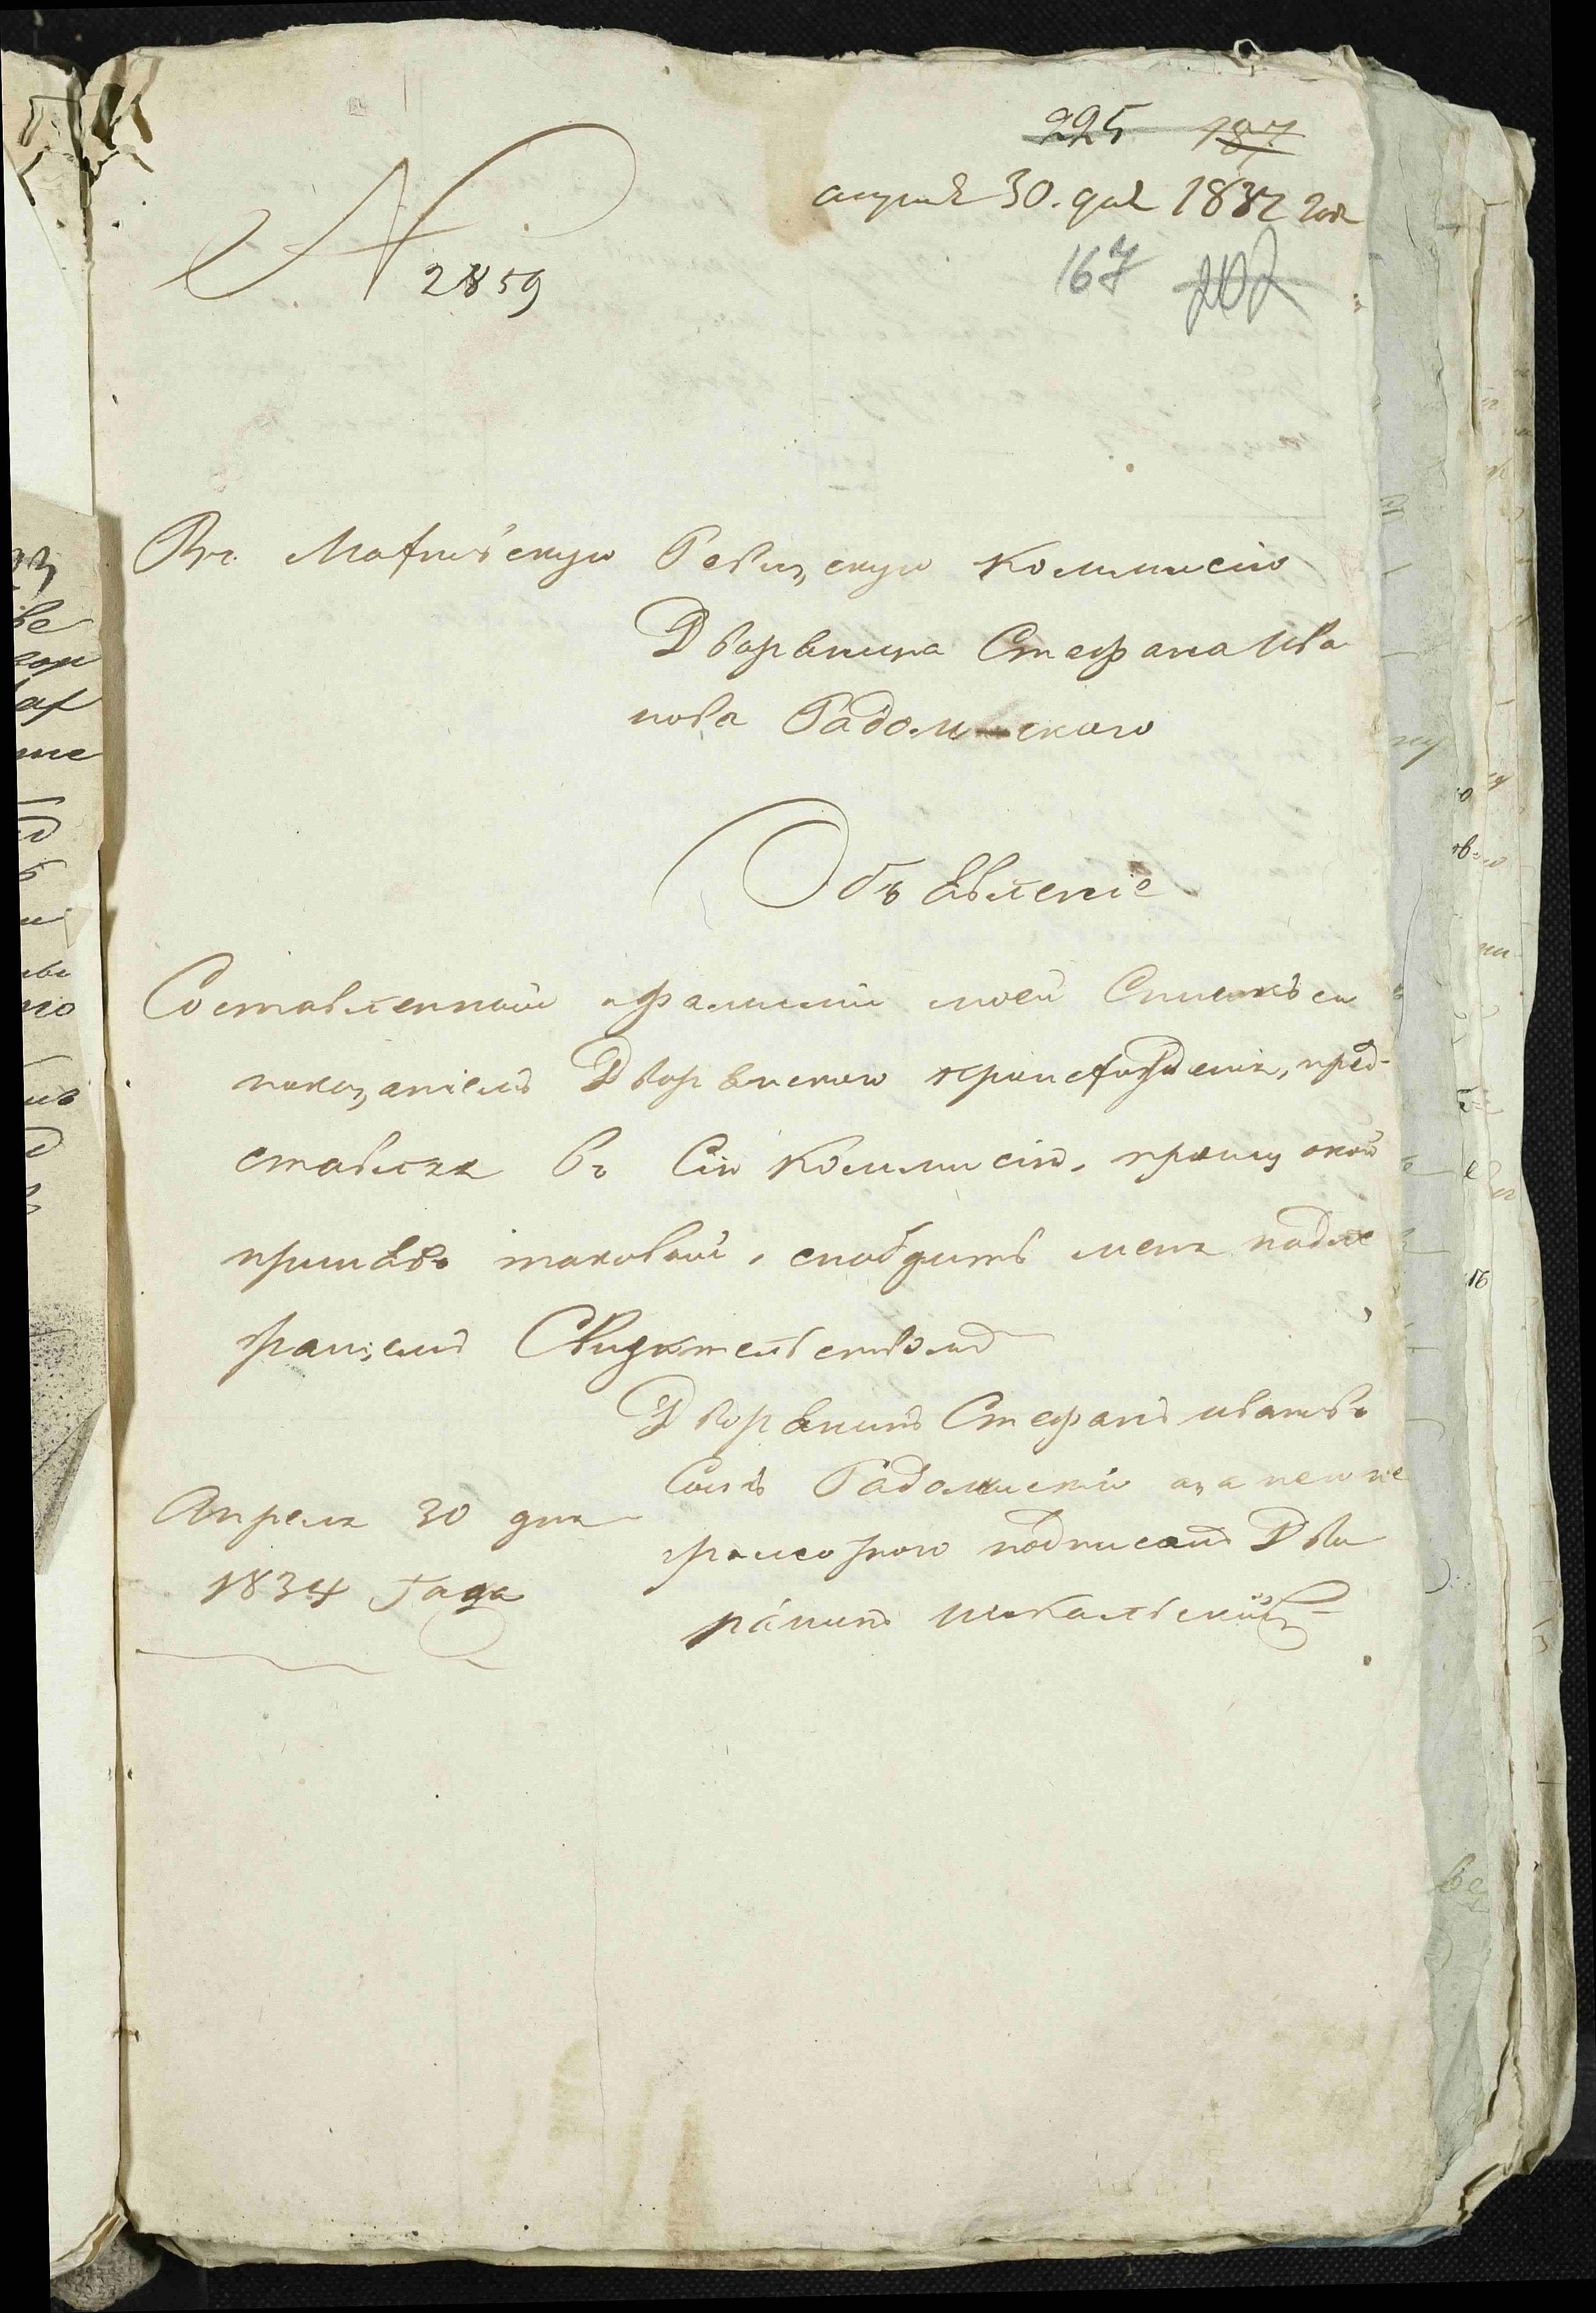 225 187
апреля 30. дня 1834 года
№ 2859
167 202
Въ Могилевскую Ревизскую Коммисію
Дворянина Стефана Ива
нова Радоминского
Объявленіе
Составленный о фамиліи моей Списокъ съ
показаніемъ Дворянского происхожденія, пред-
ставляя въ Сію Коммисію, прошу оной
принявъ таковый, снабдить меня надле
жащимъ Свидѣтельствомъ
Дворянинъ Стефанъ Ивановъ
Сынъ Радоминскій а за него не
грамотного подписалъ Дво
рянинъ
Апреля 30 дня
1834 Года